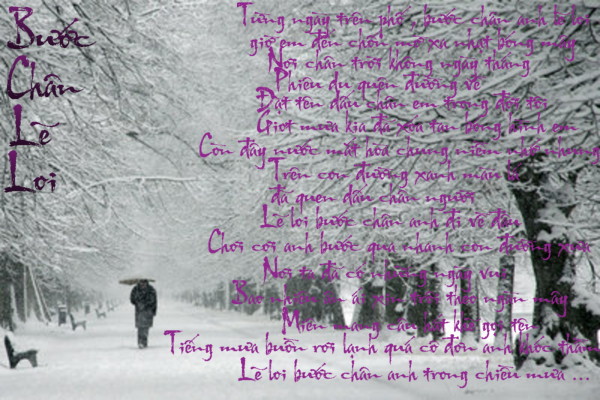 Bước
Chân
Lẽ
Loi
Từng ngày trên phố , bước chân anh lẻ loi
gió em đến chốn mơ xa nhạt bóng mây
Nơi chân trời không ngày tháng
Phiêu du quên đường về
Đạt tên dấu chân em trong đời tôi
Giọt mưa kia đã xóa tan bóng hình em
Còn đây nước mắt hòa chung niềm nhớ nhung
Trên con đường xanh màu lá
đã quen dấu chân người
Lẽ loi bước chân anh đi về đâu
Chơi vơi anh bước qua nhanh con đường xưa
Nơi ta đã có những ngày vui
Bao nhiêu ân ái xem trôi theo ngàn mây
Miên mang câu hát kia gọi tên
Tiếng mưa buồn rơi lạnh quá cô đơn anh khóc thầm
Lẽ loi bước chân anh trong chiều mưa ...